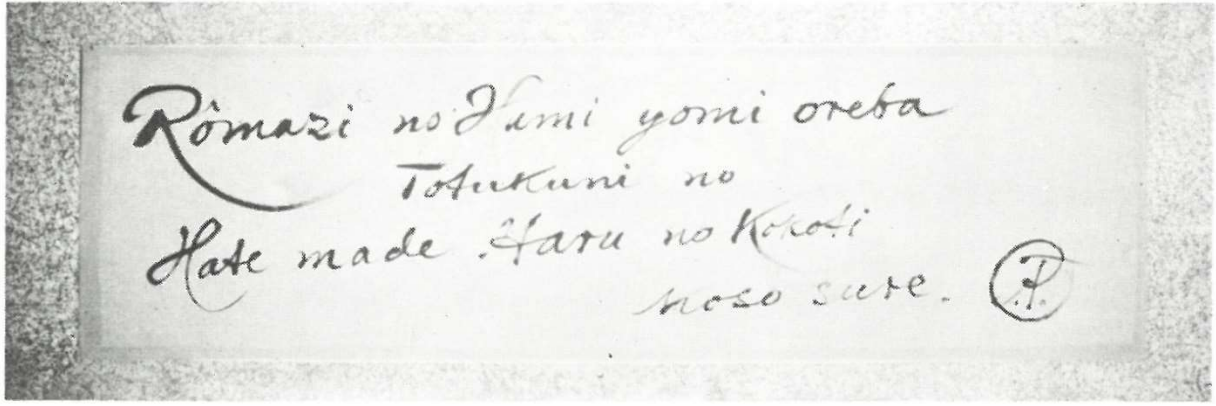 Rômazi no Humi yomi oreba
Totukuni no
Hate made Haru no Kokoti
koso sure.